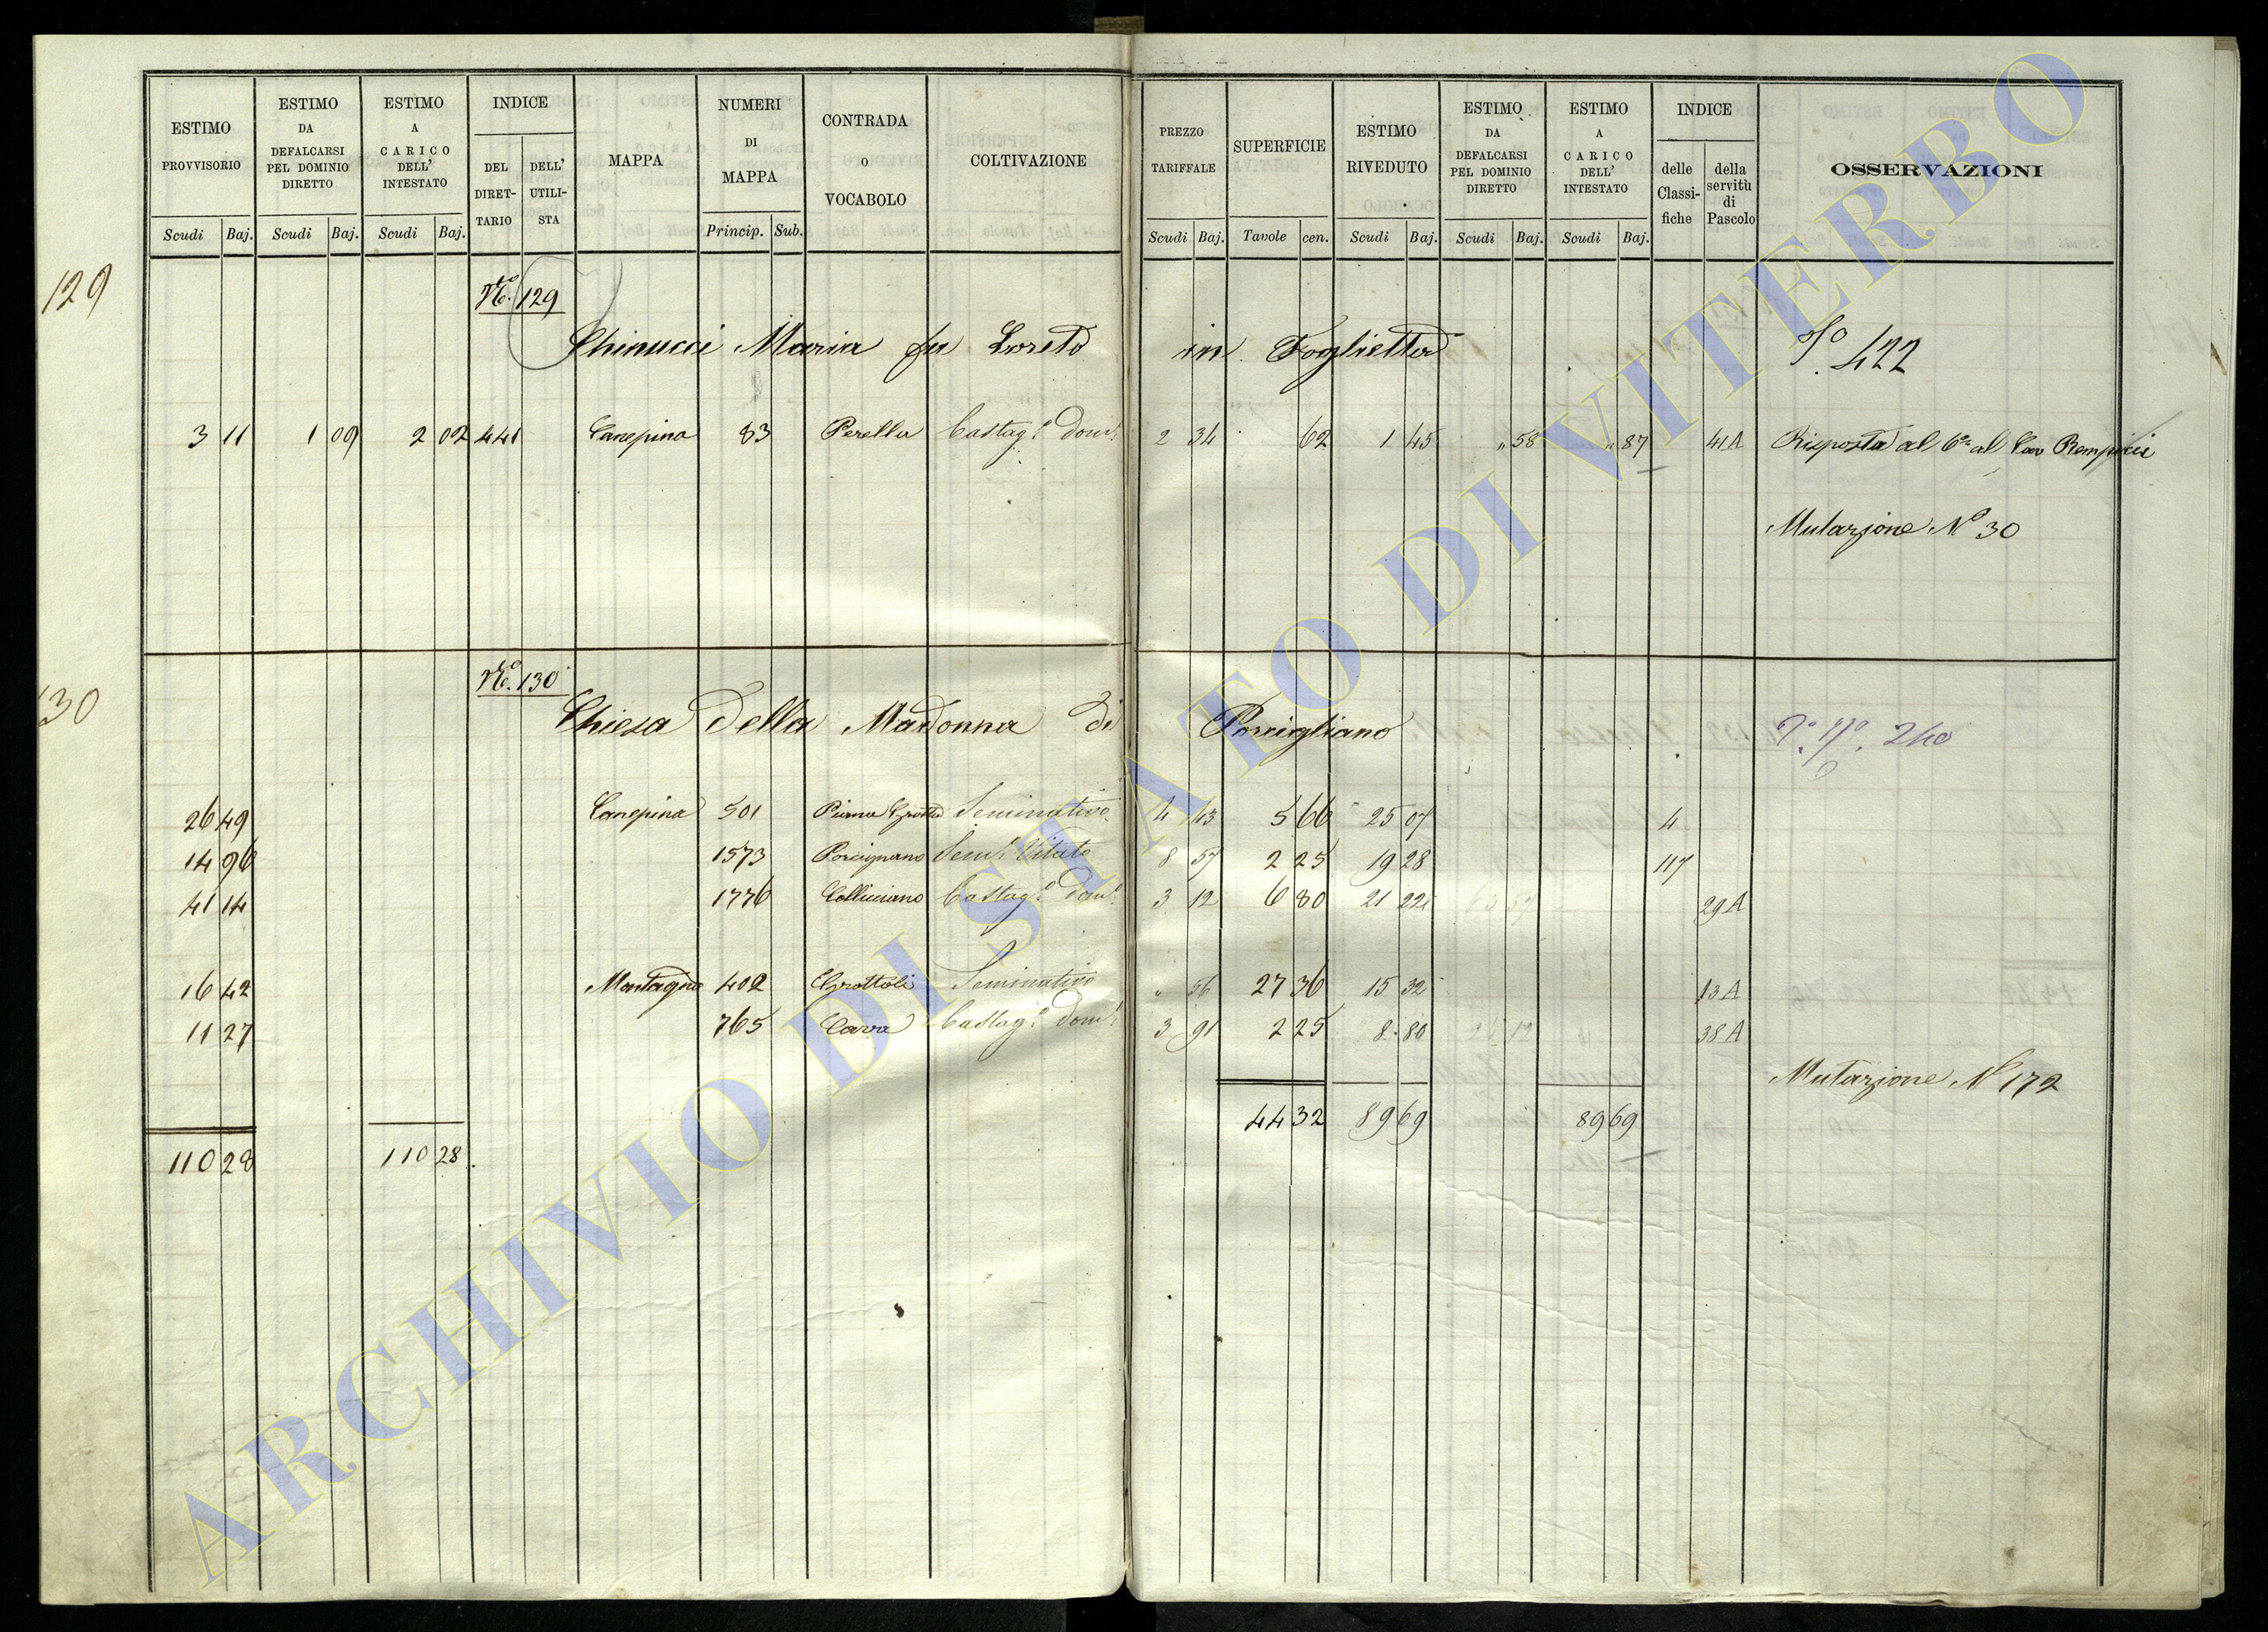 ESTIMO PROVVISORIO | ESTIMO DA DEFALCARSI PEL DOMINIO DIRETTO | ESTIMO A CARICO DELL' INTESTATO | INDICE DEL DIRET-TARIO | DELL' UTILI-STA | MAPPA | NUMERI DI MAPPA | CONTRADA O VOCABOLO | COLTIVAZIONE | PREZZO TARIFFALE | SUPERFICIE | ESTIMO RIVEDUTO | ESTIMO DA DEFALCARSI PEL DOMINIO DIRETTO | ESTIMO A CARICO DELL' INTESTATO | INDICE delle Classi-fiche | della servitù di Pascolo | OSSERVAZIONI
Scudi | Baj. | Scudi | Baj. | Scudi | Baj. | Princip. | Sub. | Scudi | Baj. | Tavole | cen. | Scudi | Baj. | Scudi | Baj. | Scudi | Baj.
129 | No. 129
Chinucci Maria fu Loreto in Foglietta | 422
3 11 | 1 09 | 2 02 | 441 | Canepina | 83 | Perella | Castag.o Dom. | 2 34 | 62 | 1 45 | " 58 | " 87 | 41A | Risposta al 6.a al
Mutazione No 30
130 | No. 130
Chiesa Della Madonna di Porcigliano | 240
26 49 | Canepina | 501 | Seminativo | 4 43 | 5 66 | 25 07 | 4
14 96 | 1573 | Porcignano | Sem. Vitato | 8 57 | 2 25 | 19 28 | 117
41 14 | 1776 | Colliciano | Castag.o Dom. | 3 12 | 6 80 | 21 22 | 29A
16 42 | Montagna | 402 | Grottoli | Seminativo | " 56 | 27 36 | 15 32 | 13A
11 27 | 765 | Cava | Castag.o Dom. | 3 91 | 2 25 | 8.80 | 38A
Mutazione N 172
44 32 | 89 69 | 89 69
110 28 | 110 28
ARCHIVIO DI STATO DI VITERBO